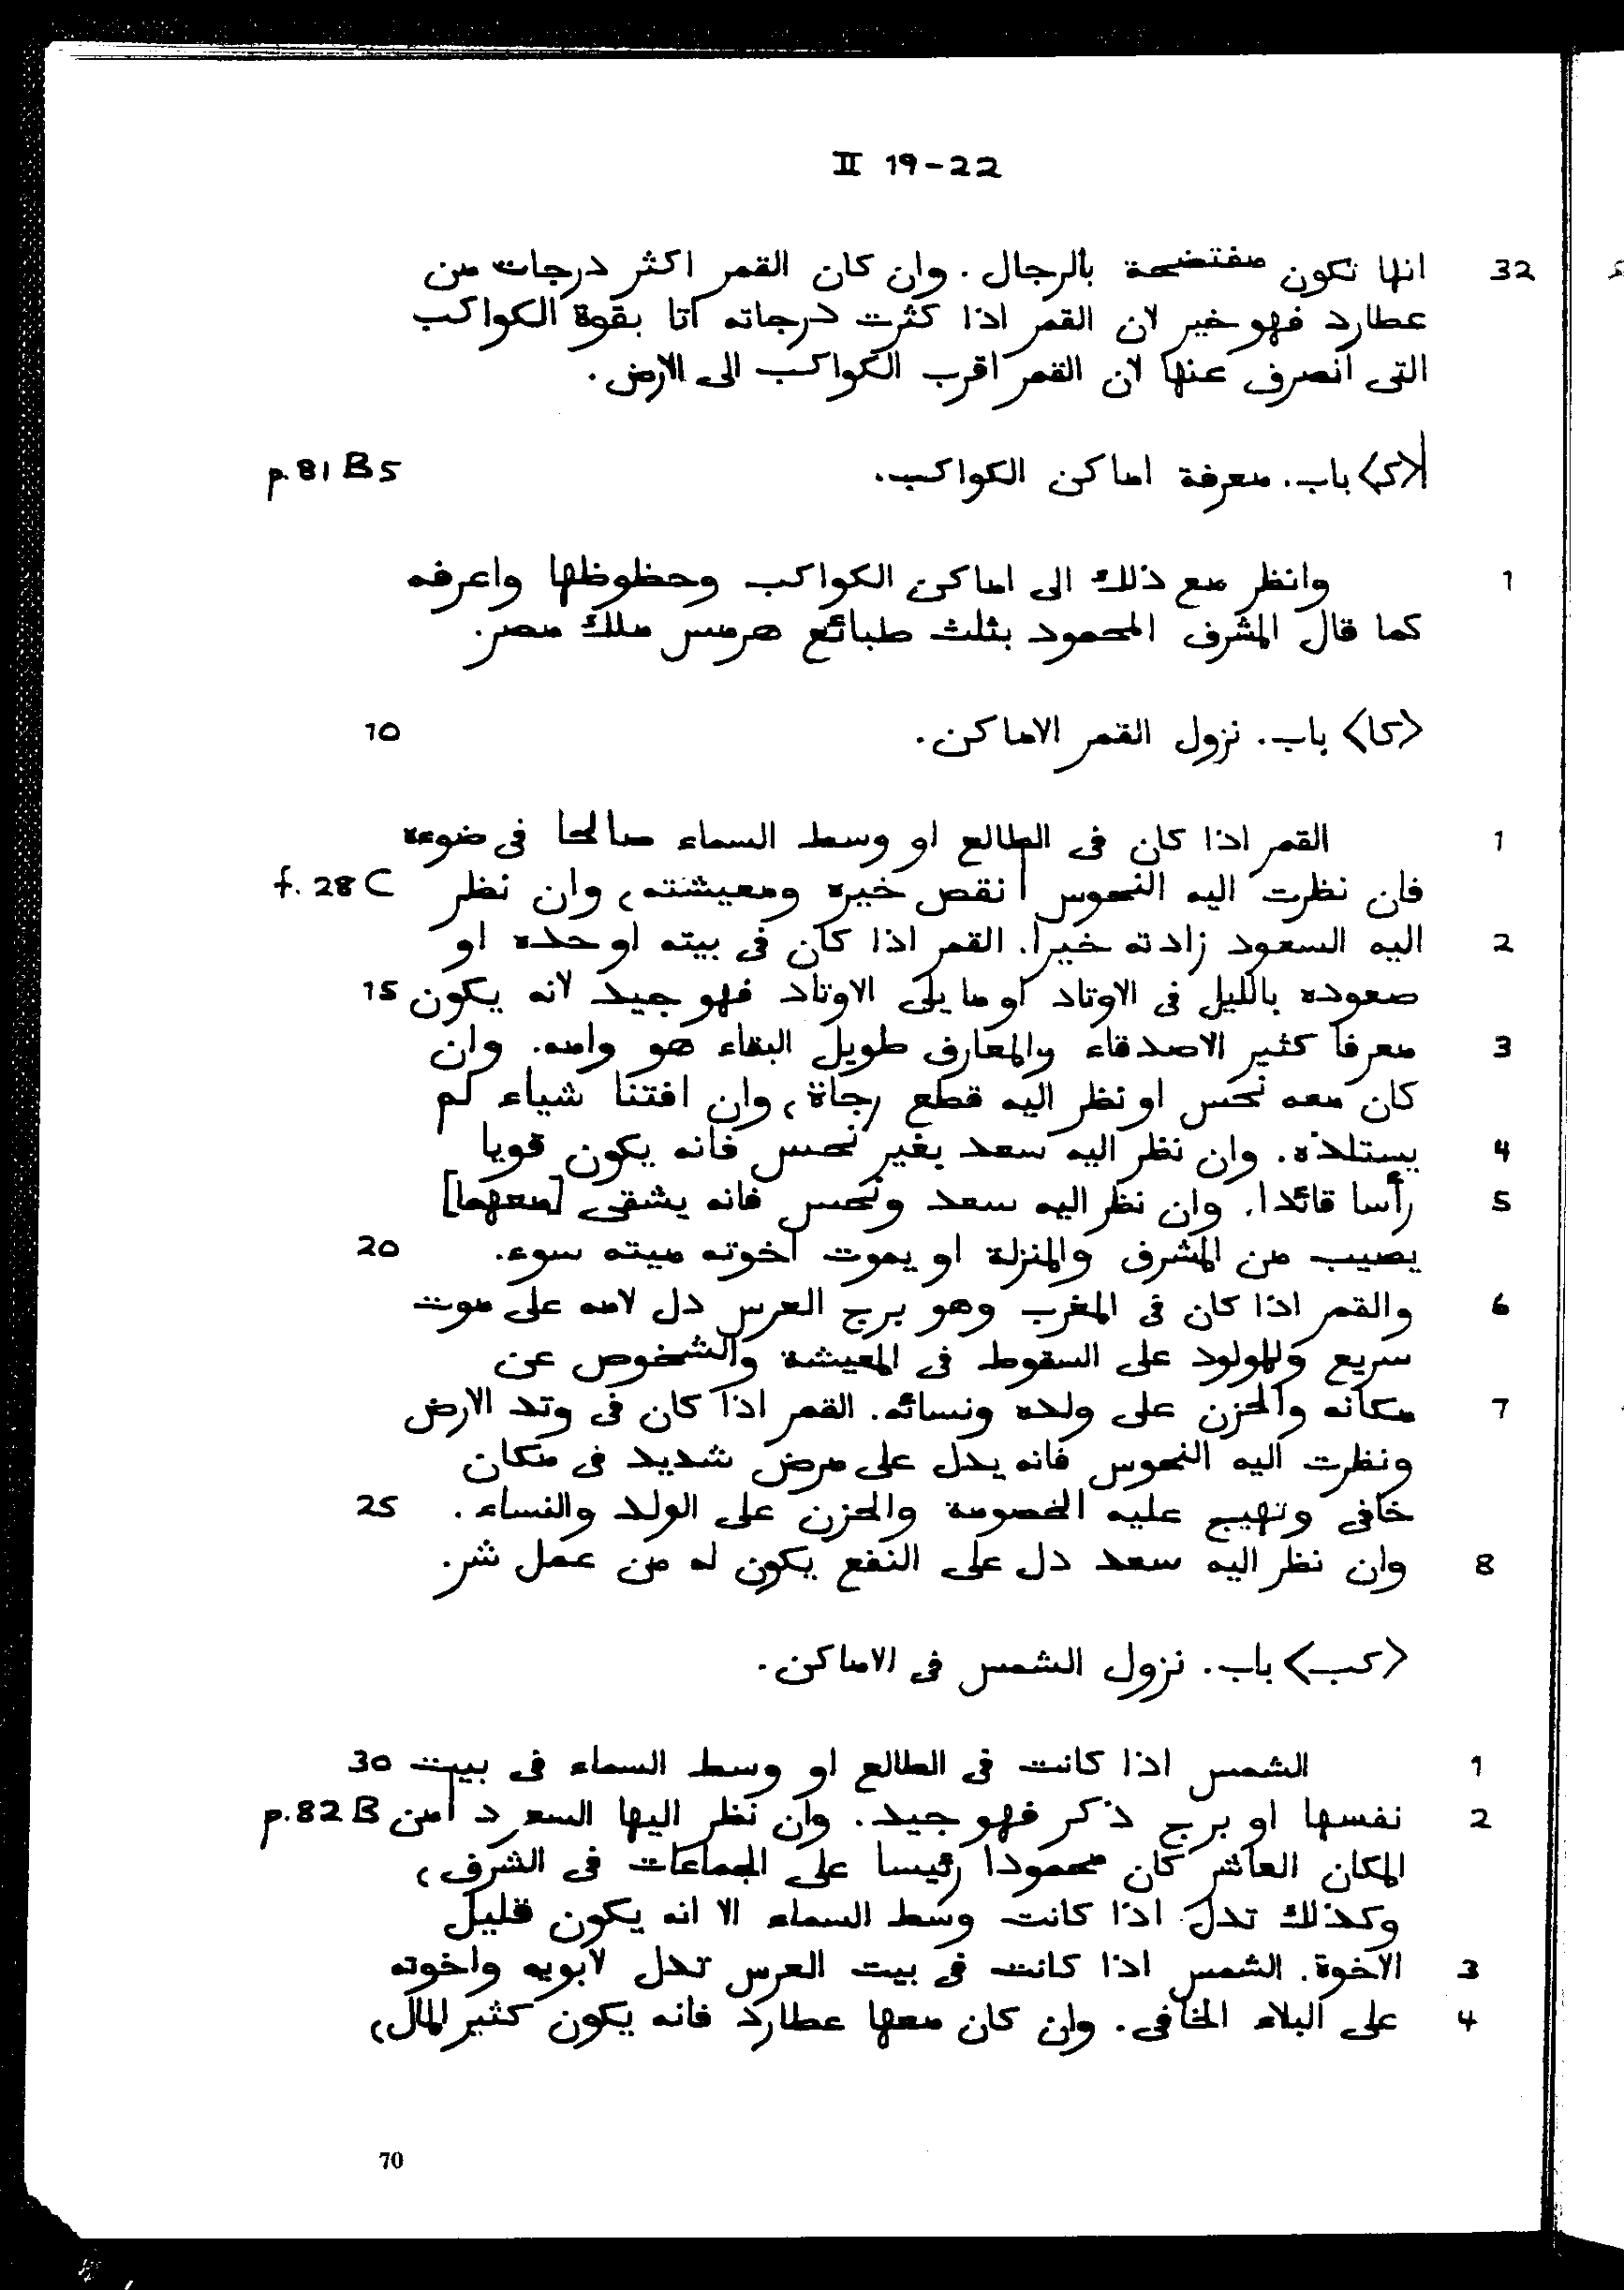 II 19-22
32 انها تكون مفتضحة بالرجال . وان كان القمر اكثر درجات من
عطارد فهو خير لان القمر اذا كثرت درجاته اتا بقوة الكواكب
التى انصرف عنها لان القمر اقرب الكواكب الى الارض .
|<ك> باب . معرفة اماكن الكواكب . p.81 B 5
1 وانظر مع ذلك الى اماكن الكواكب وحظوظها واعرفه
كما قال المشرف المحمود بثلث طبائع هرمس ملك مصر .
<كا> باب . نزول القمر الاماكن . 10
1 القمر اذا كان فى الطالع او وسط السماء صالحا فى ضوءه
فان نظرت اليه النحوس | نقص خيره ومعيشته ، وان نظر f. 28 C
2 اليه السعود زادته خيرا . القمر اذا كان فى بيته او حده او
صعوده بالليل فى الاوتاد او ما يلى الاوتاد فهو جيد لانه يكون 15
3 معرفا كثير الاصدقاء والمعارف طويل البقاء هو وامه . وان
كان معه نحس او نظر اليه قطع رجاة ، وان افتنا شياء لم
4 يستلذه . وان نظر اليه سعد بغير نحس فانه يكون قويا
5 رأسا قائدا . وان نظر اليه سعد ونحس فانه يشقى [معهما]
يصيب من المشرف والمنزلة او يموت اخوته ميته سوء . 20
6 والقمر اذا كان فى المغرب وهو برج العرس دل لامه على موت
سريع وللمولود على السقوط فى المعيشة والشخوص عن
7 مكانه والحزن على ولده ونسائه . القمر اذا كان فى وتد الارض
ونظرت اليه النحوس فانه يدل على مرض شديد فى مكان
خافى وتهيج عليه الخصومة والحزن على الولد والنساء . 25
8 وان نظر اليه سعد دل على النفع يكون له من عمل شر .
<كب> باب . نزول الشمس فى الاماكن .
1 الشمس اذا كانت فى الطالع او وسط السماء فى بيت 30
2 نفسها او برج ذكر فهو جيد . وان نظر اليها السعود | من p.82 B
المكان العاشر كان محمودا رئيسا على الجماعات فى الشرف ،
وكذلك تدل اذا كانت وسط السماء الا انه يكون قليل
3 الاخوة . الشمس اذا كانت فى بيت العرس تدل لابويه واخوته
4 على البلاء الخافى . وان كان معها عطارد فانه يكون كثير المال ،
70